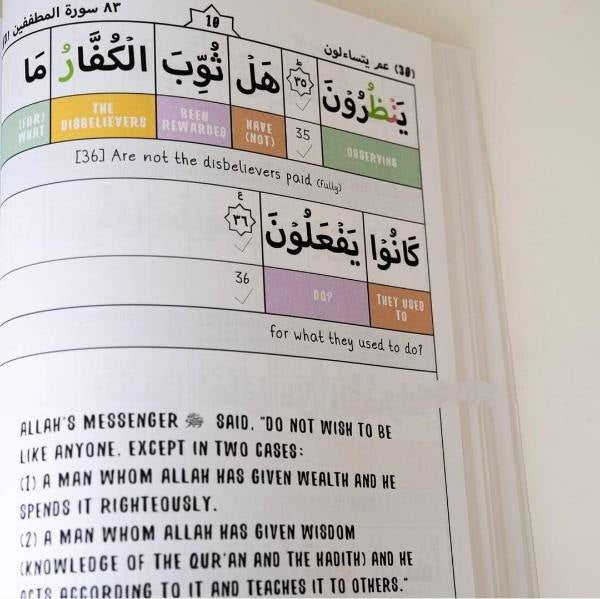 ٨٣ سورة المطففين
10
(30) عم يتساءلون
يَنْظُرُوْنَ ٣٥ هَلْ ثُوِّبَ الْكُفَّارُ مَا
OBSERVING 35 HAVE (NOT) BEEN REWARDED THE DISBELIEVERS (FOR) WHAT
[36] Are not the disbelievers paid (fully)
كَانُوْا يَفْعَلُوْنَ ع ٣٦
THEY USED TO DO? 36
for what they used to do?
ALLAH'S MESSENGER ﷺ SAID, "DO NOT WISH TO BE
LIKE ANYONE, EXCEPT IN TWO CASES:
(1) A MAN WHOM ALLAH HAS GIVEN WEALTH AND HE
SPENDS IT RIGHTEOUSLY.
(2) A MAN WHOM ALLAH HAS GIVEN WISDOM
(KNOWLEDGE OF THE QUR'AN AND THE HADITH) AND HE
ACTS ACCORDING TO IT AND TEACHES IT TO OTHERS."